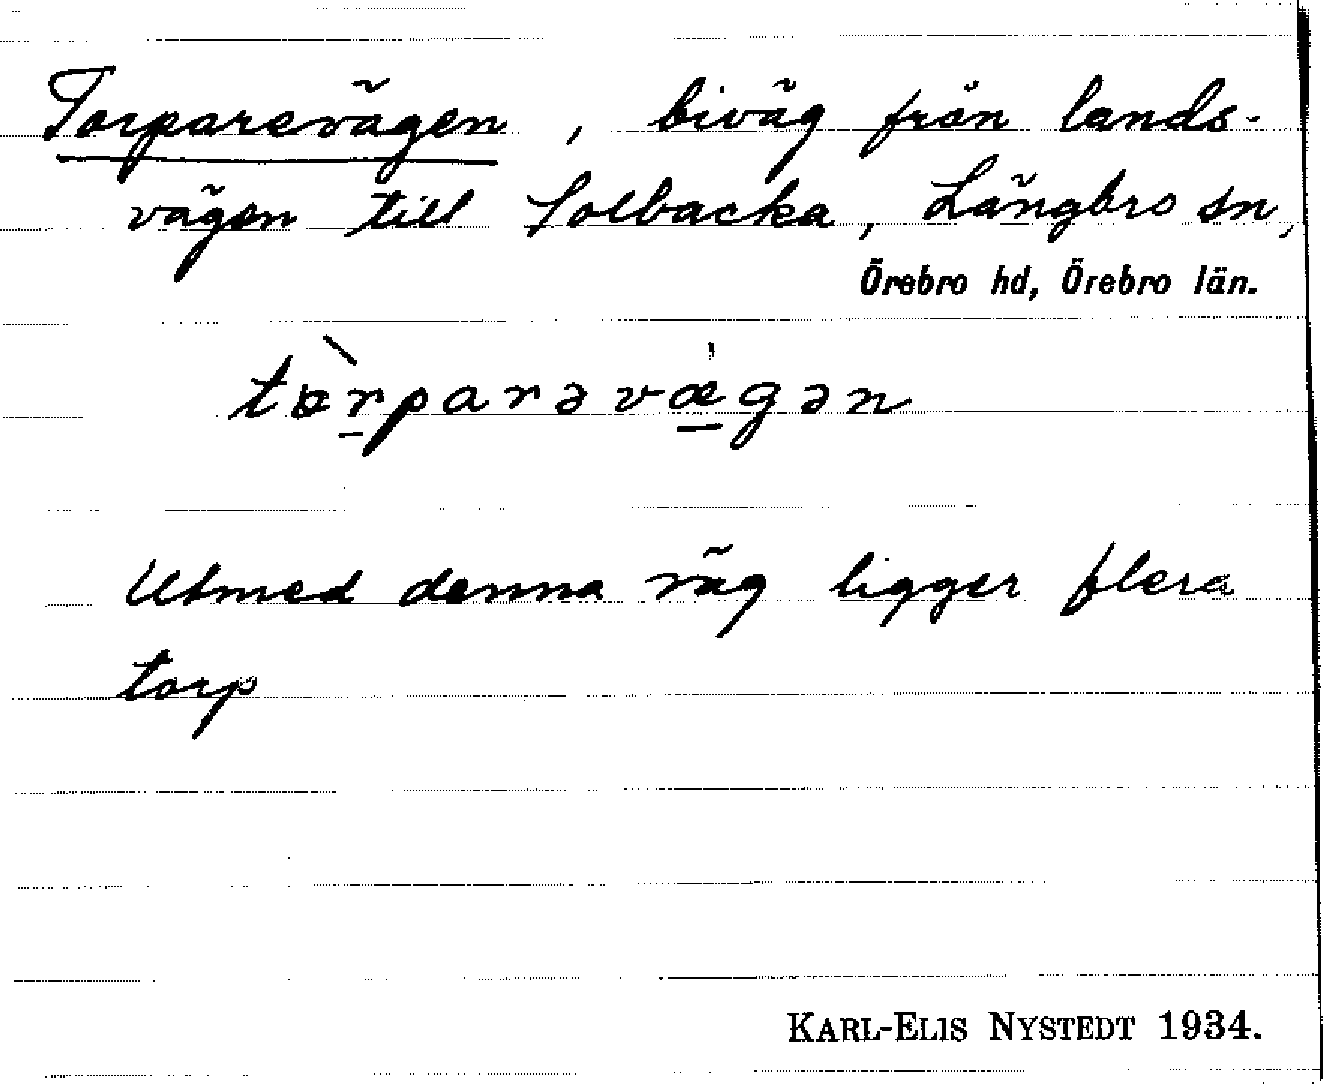 Torparevägen, biväg från lands-
vägen till Solbacka, Längbro sn,
Örebro hd, Örebro län.
tɵ̀rparəvæ̍gən
Utmed denna väg ligger flera
torp
KARL-ELIS NYSTEDT 1934.